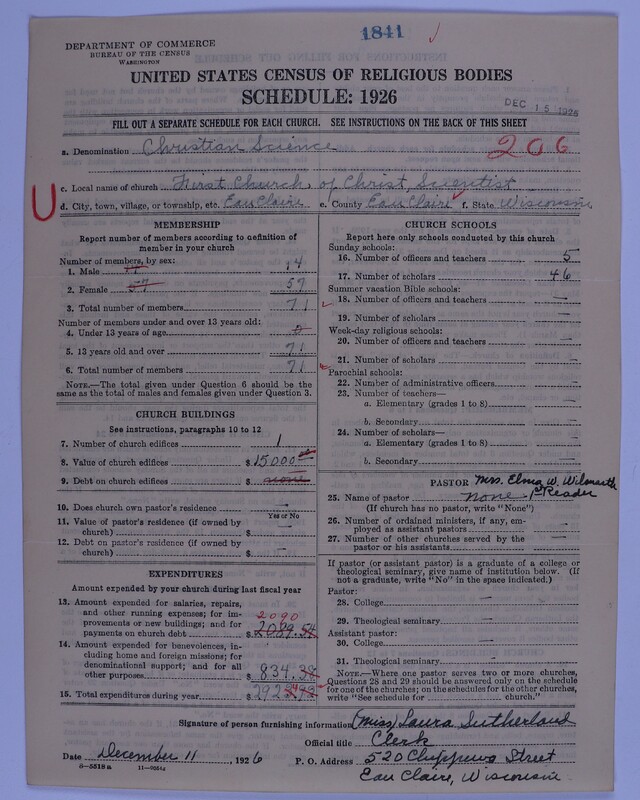 1841
DEPARTMENT OF COMMERCE
BUREAU OF THE CENSUS
WASHINGTON
UNITED STATES CENSUS OF RELIGIOUS BODIES
SCHEDULE: 1926
DEC 15 1926
FILL OUT A SEPARATE SCHEDULE FOR EACH CHURCH. SEE INSTRUCTIONS ON THE BACK OF THIS SHEET
a. Denomination Christian Science 206
c. Local name of church First Church of Christ, Scientist
U
d. City, town, village, or township, etc. Eau Claire e. County Eau Claire f. State Wisconsin
MEMBERSHIP
Report number of members according to definition of
member in your church
Number of members, by sex:
1. Male 14
2. Female 57 57
3. Total number of members 71
Number of members under and over 13 years old:
4. Under 13 years of age 0
5. 13 years old and over 71
6. Total number of members 71
NOTE.—The total given under Question 6 should be
same as the total of males and females given under Question 3.
CHURCH BUILDINGS
See instructions, paragraphs 10 to 12
7. Number of church edifices 1
8. Value of church edifices $15000
9. Debt on church edifices $ none
10. Does church own pastor's residence —
Yes or No
11. Value of pastor's residence (if owned by
church) $ —
12. Debt on pastor's residence (if owned by
church) $ —
EXPENDITURES
Amount expended by your church during last fiscal year
13. Amount expended for salaries, repairs,
and other running expenses; for im-
provements or new buildings; and for
payments on church debt $ 2089.54
2090
14. Amount expended for benevolences, in-
cluding home and foreign missions; for
denominational support; and for all
other purposes $ 834.38
15. Total expenditures during year $
CHURCH SCHOOLS
Report here only schools conducted by this church
Sunday schools:
16. Number of officers and teachers 5
17. Number of scholars 46
Summer vacation Bible schools:
18. Number of officers and teachers —
19. Number of scholars —
Week-day religious schools:
20. Number of officers and teachers —
21. Number of scholars —
Parochial schools:
22. Number of administrative officers —
23. Number of teachers—
a. Elementary (grades 1 to 8) —
b. Secondary —
24. Number of scholars—
a. Elementary (grades 1 to 8) —
b. Secondary —
PASTOR Mrs. Elma W. Wilmarth
25. Name of pastor none 1st Reader
(If church has no pastor, write "None")
26. Number of ordained ministers, if any, em-
ployed as assistant pastors —
27. Number of other churches served by the
pastor or his assistants —
If pastor (or assistant pastor) is a graduate of a college or
theological seminary, give name of institution below. (If
not a graduate, write "No" in the space indicated.)
Pastor:
28. College —
29. Theological seminary —
Assistant pastor:
30. College —
31. Theological seminary —
NOTE.—Where one pastor serves two or more churches,
Questions 28 and 29 should be answered only on the schedule
for one of the churches; on the schedules for the other churches,
write "See schedule for church."
Signature of person furnishing information (Miss) Laura Sutherland
Official title Clerk
Date December 11, 1926 P. O. Address 520 Chippewa Street
8—5518a 11—9554
Eau Claire, Wisconsin